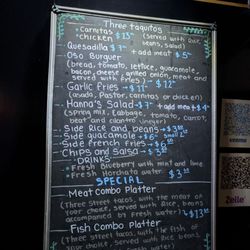 Three taquitos
• Carnitas
• chicken $13 (served with Rice beans, salad)
Quesadilla $7 + add meat $5
Oso Burguer
(bread, tomato, lettuce, guacamole,
bacon, cheese, grilled onion, meat and
served with fries) $12
Garlic Fries $11 - $12
(asada, Pastor, carnitas or chicken)
Hanna's Salad $7 + add meat $4
(spring mix, cabbage, tomato, carrot,
beat and cilantro vinegar)
Side Rice and beans $3.00
Side guacamole $6 small 2
Side french fries $6.00
Chips and Salsa $3.50
DRINKS
Fresh Blueberry with mint and lime
Fresh Horchata water $3.50
SPECIAL
Meat Combo Platter
(Three street tacos, with the meat of
your choice, served with Rice, beans
accompanied by Fresh water) $13
Fish Combo Platter
(Three street tacos, with the fish of
your choice, served with Rice, beans
venmo
Zelle